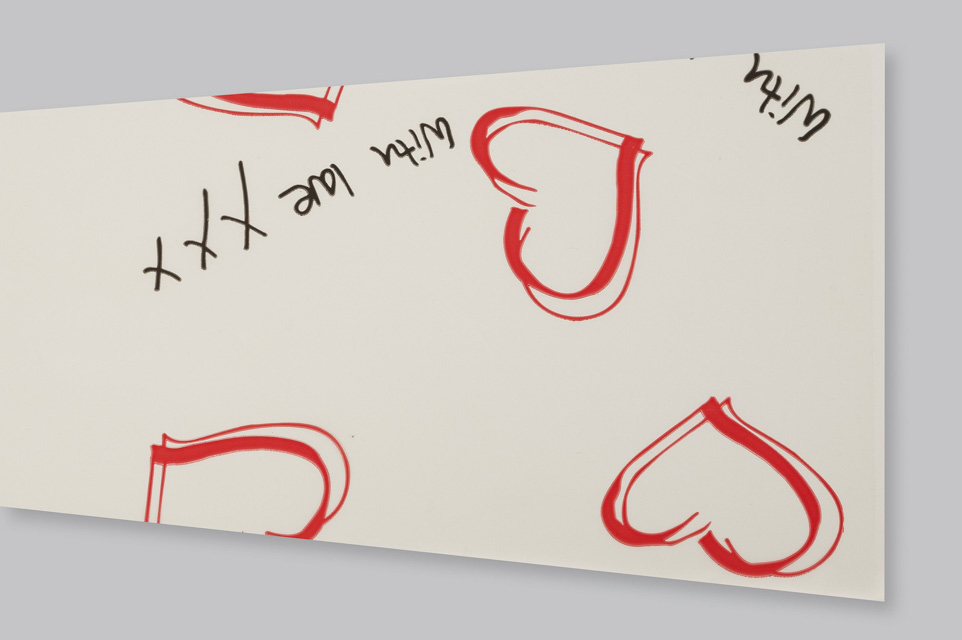 With love XXX
With